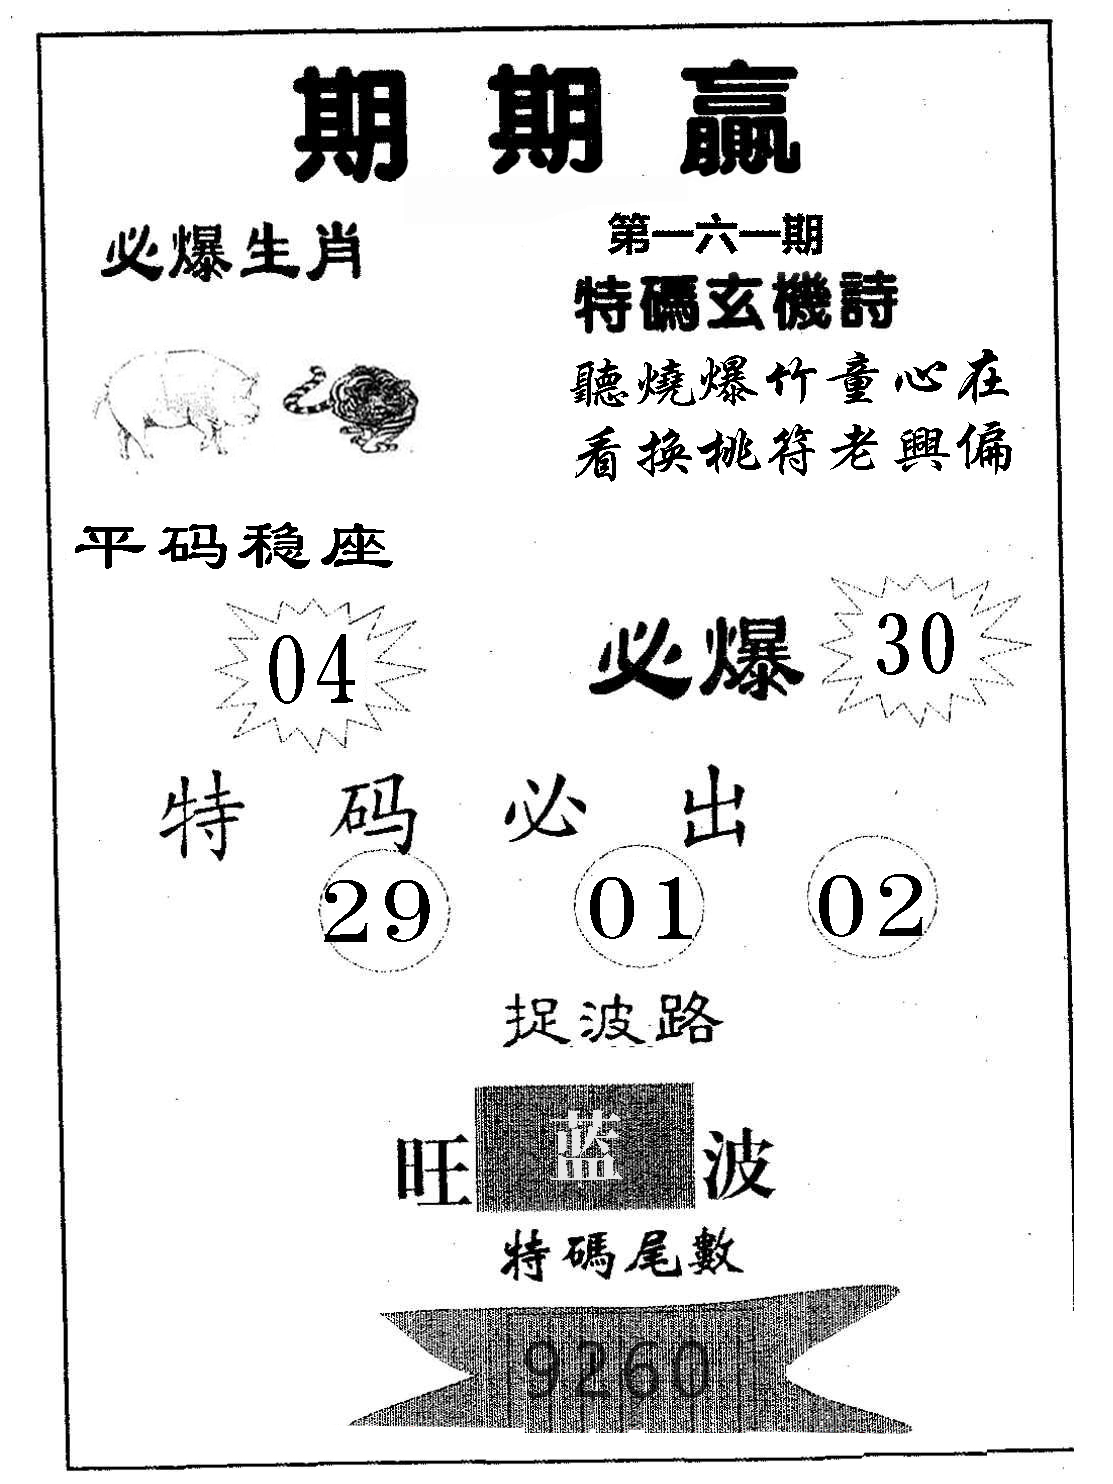 期期赢
必爆生肖
第一六一期
特碼玄機詩
聽燒爆竹童心在
看換桃符老興偏
平码稳座
04
必爆 30
特码必出
29 01 02
捉波路
旺 蓝 波
特碼尾數
9260